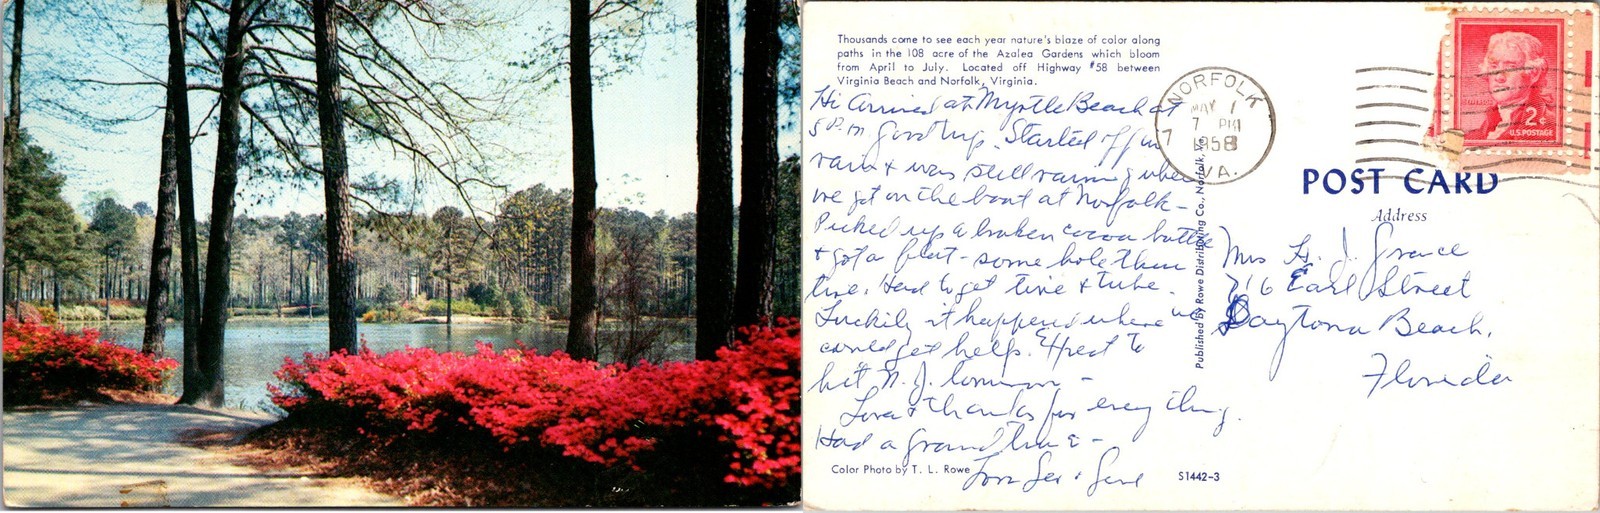 Thousands come to see each year nature's blaze of color along
paths in the 108 acre of the Azalea Gardens which bloom
from April to July. Located off Highway #58 between
Virginia Beach and Norfolk, Virginia.
Hi Arrived at Myrtle Beach at
5 P.M. Good trip. Started off in
rain & was still raining when
we got on the boat at Norfolk -
Picked up a broken cocoa bottle
& got a flat - some hole thru
tire. Had to get tire & tube.
Luckily it happened where we
could get help. Expect to
hit N. J. tomorrow -
Love & thanks for every thing.
Had a grand time -
Love & Gene
Color Photo by T. L. Rowe
S1442-3
Published by Rowe Distributing Co., Norfolk, Va.
NORFOLK
MAY 1
7 PM
1958
VA.
2¢
U.S. POSTAGE
POST CARD
Address
Mrs H. J. Grace
716 Earl Street
Daytona Beach,
Florida